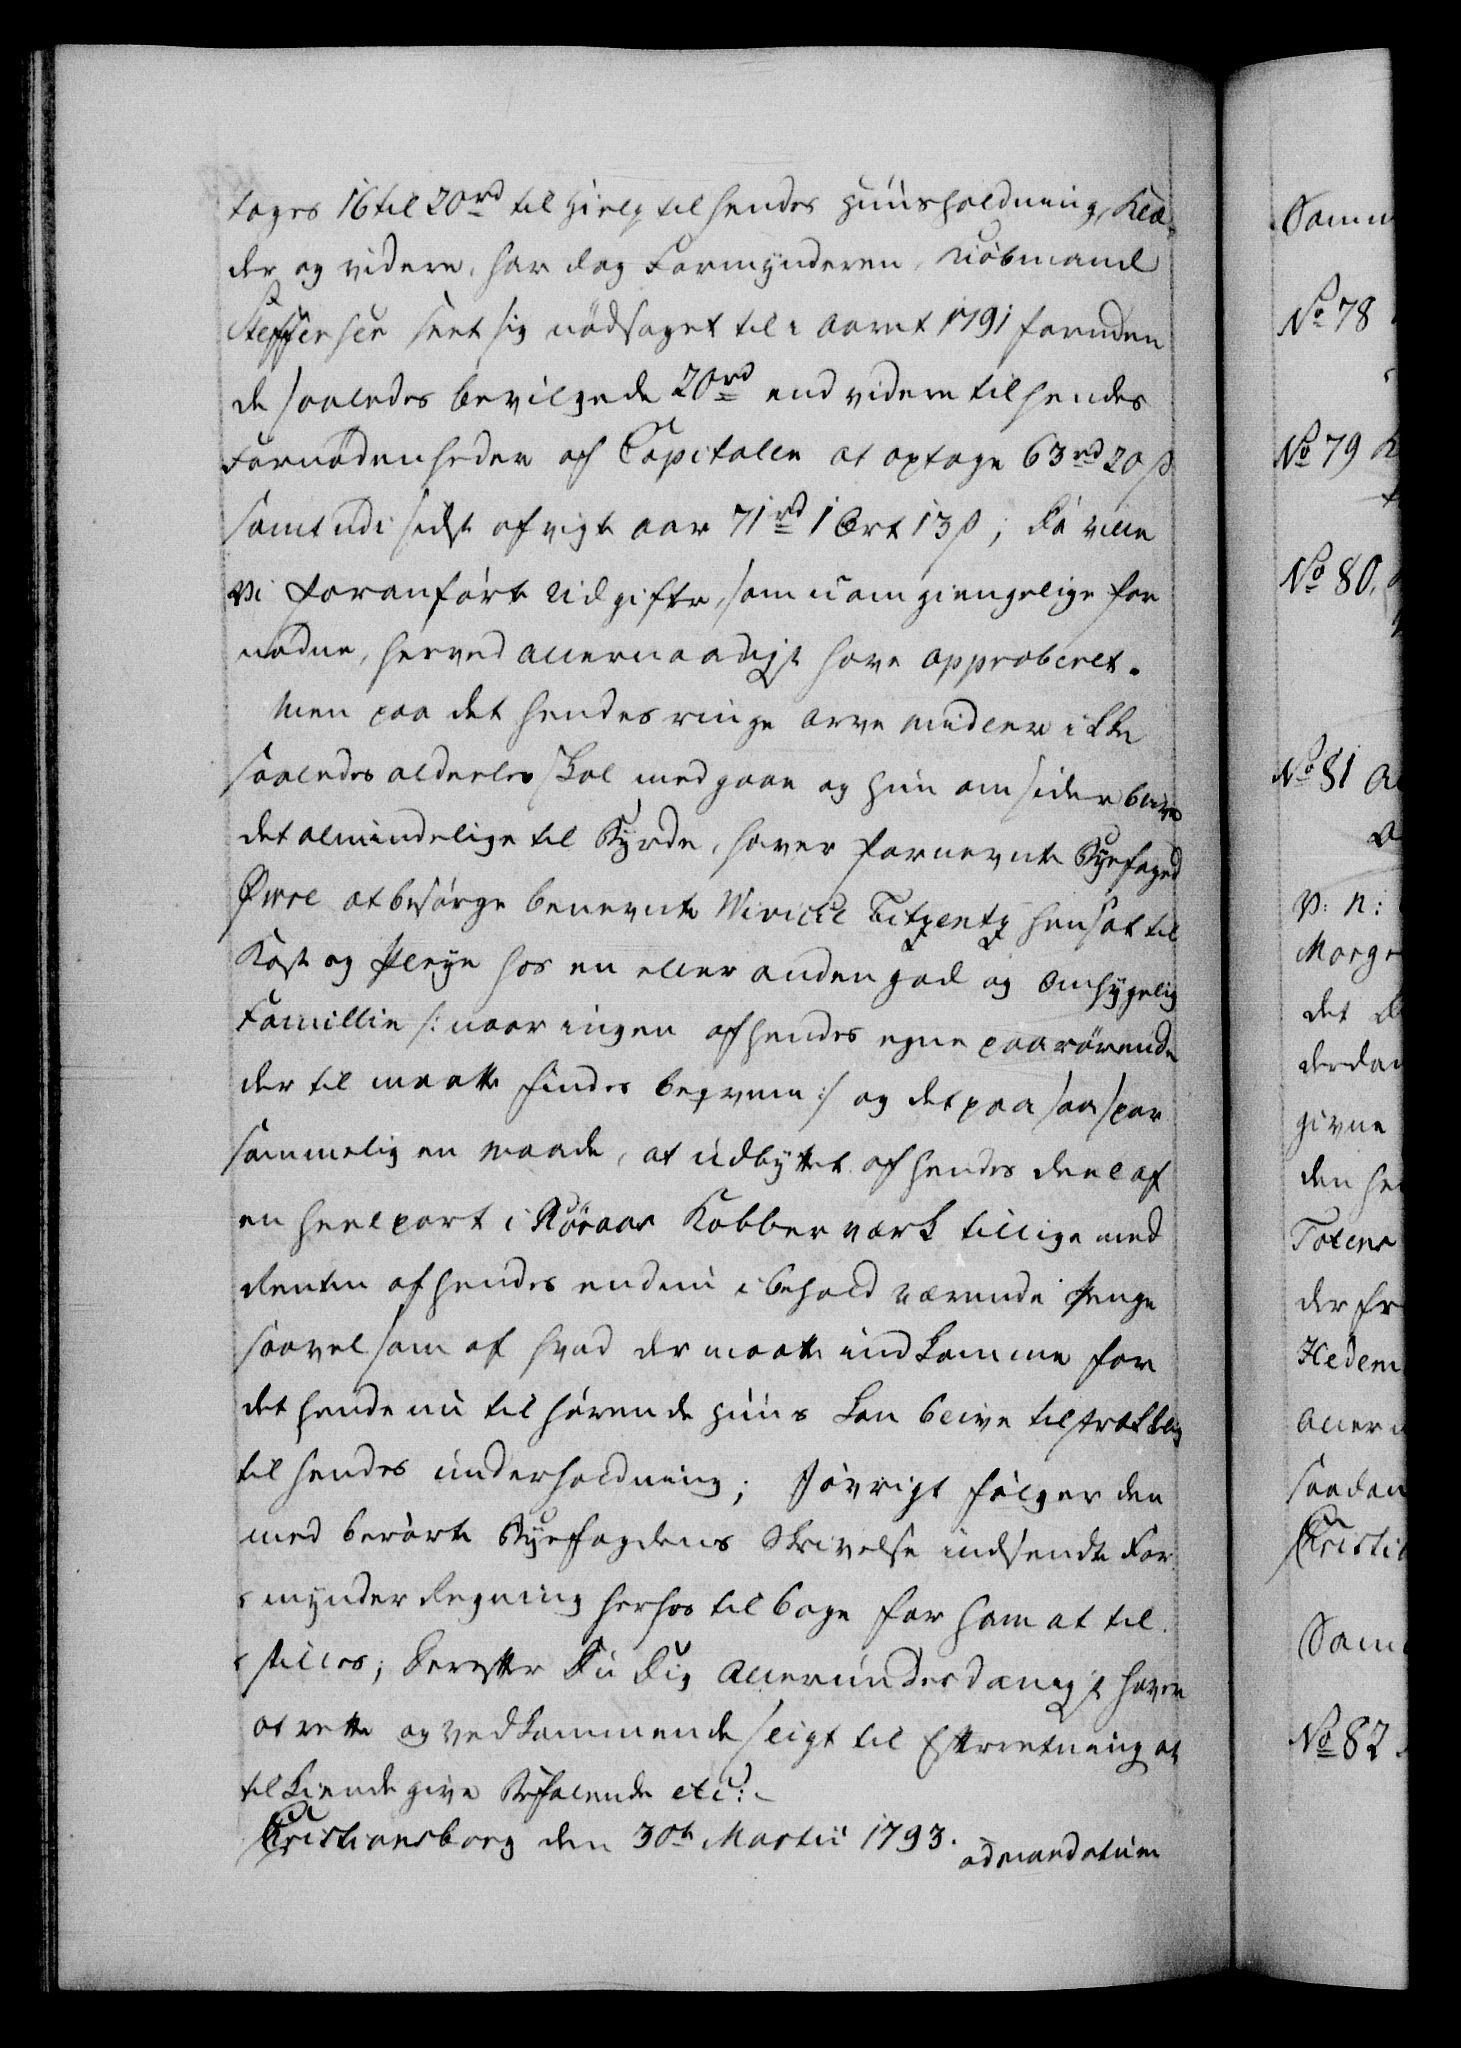 tages 16 til 20 rd til Hielp til hendes Huusholdning, Klæ-
der og videre, har dog Formynderen, Kiöbmand
Steffensen seet sig nödsaget til i Aaret 1791 foruden
de saaledes bevilgede 20 rd end videre til hendes
Fornödenheder af Capitalen at optage 63 rd 20 ß
samt udi sidst afvigte Aar 71 rd 1 Ort 13 ß; Da ville
Vi foranförte Udgifter, som uomgiengelige for-
nödne, herved allernaadigst have approberet.
Men paa det hendes ringe Arve Midler ikke
saaledes aldeeles skal medgaae og hun omsider blive
det almindelige til Byrde, haver fornevnte Byefoged
at besörge benevnte hensat til
Kost og Pleye hos en eller anden god og omhygelig
Familie /: naar ingen af hendes egne paarörende
der til maatte findes beqvem :/ og det paa saa spar-
sommelig en Maade, at Udbyttet af hendes Deel af
en heel part i Röraas Kobberværk tillige med
Renten af hendes endnu i behold værende Penge
saavelsom af hvad der maatte indkomme for
det hende nu tilhörende Huus kan blive tilstrækkelig
til hendes underholdning; Iövrigt fölger den
med berörte Byefogdens Skrivelse indsendte For-
mynder Regning herhos tilbage for ham at til-
stilles; Derefter Du Dig allerunderdanigst haver
at rette og vedkommende sligt til Efterretning at
tilkiendegive Befalende etc:
Christiansborg den 30te Martii 1793.
ad mandatum
Samm
No 78
No 79
No 80.
No 81
V: N:
Norge
det
derdan
givne
den he
Totens
der fr
Hedem
Aller
saadan
Christia
Sam
No 82